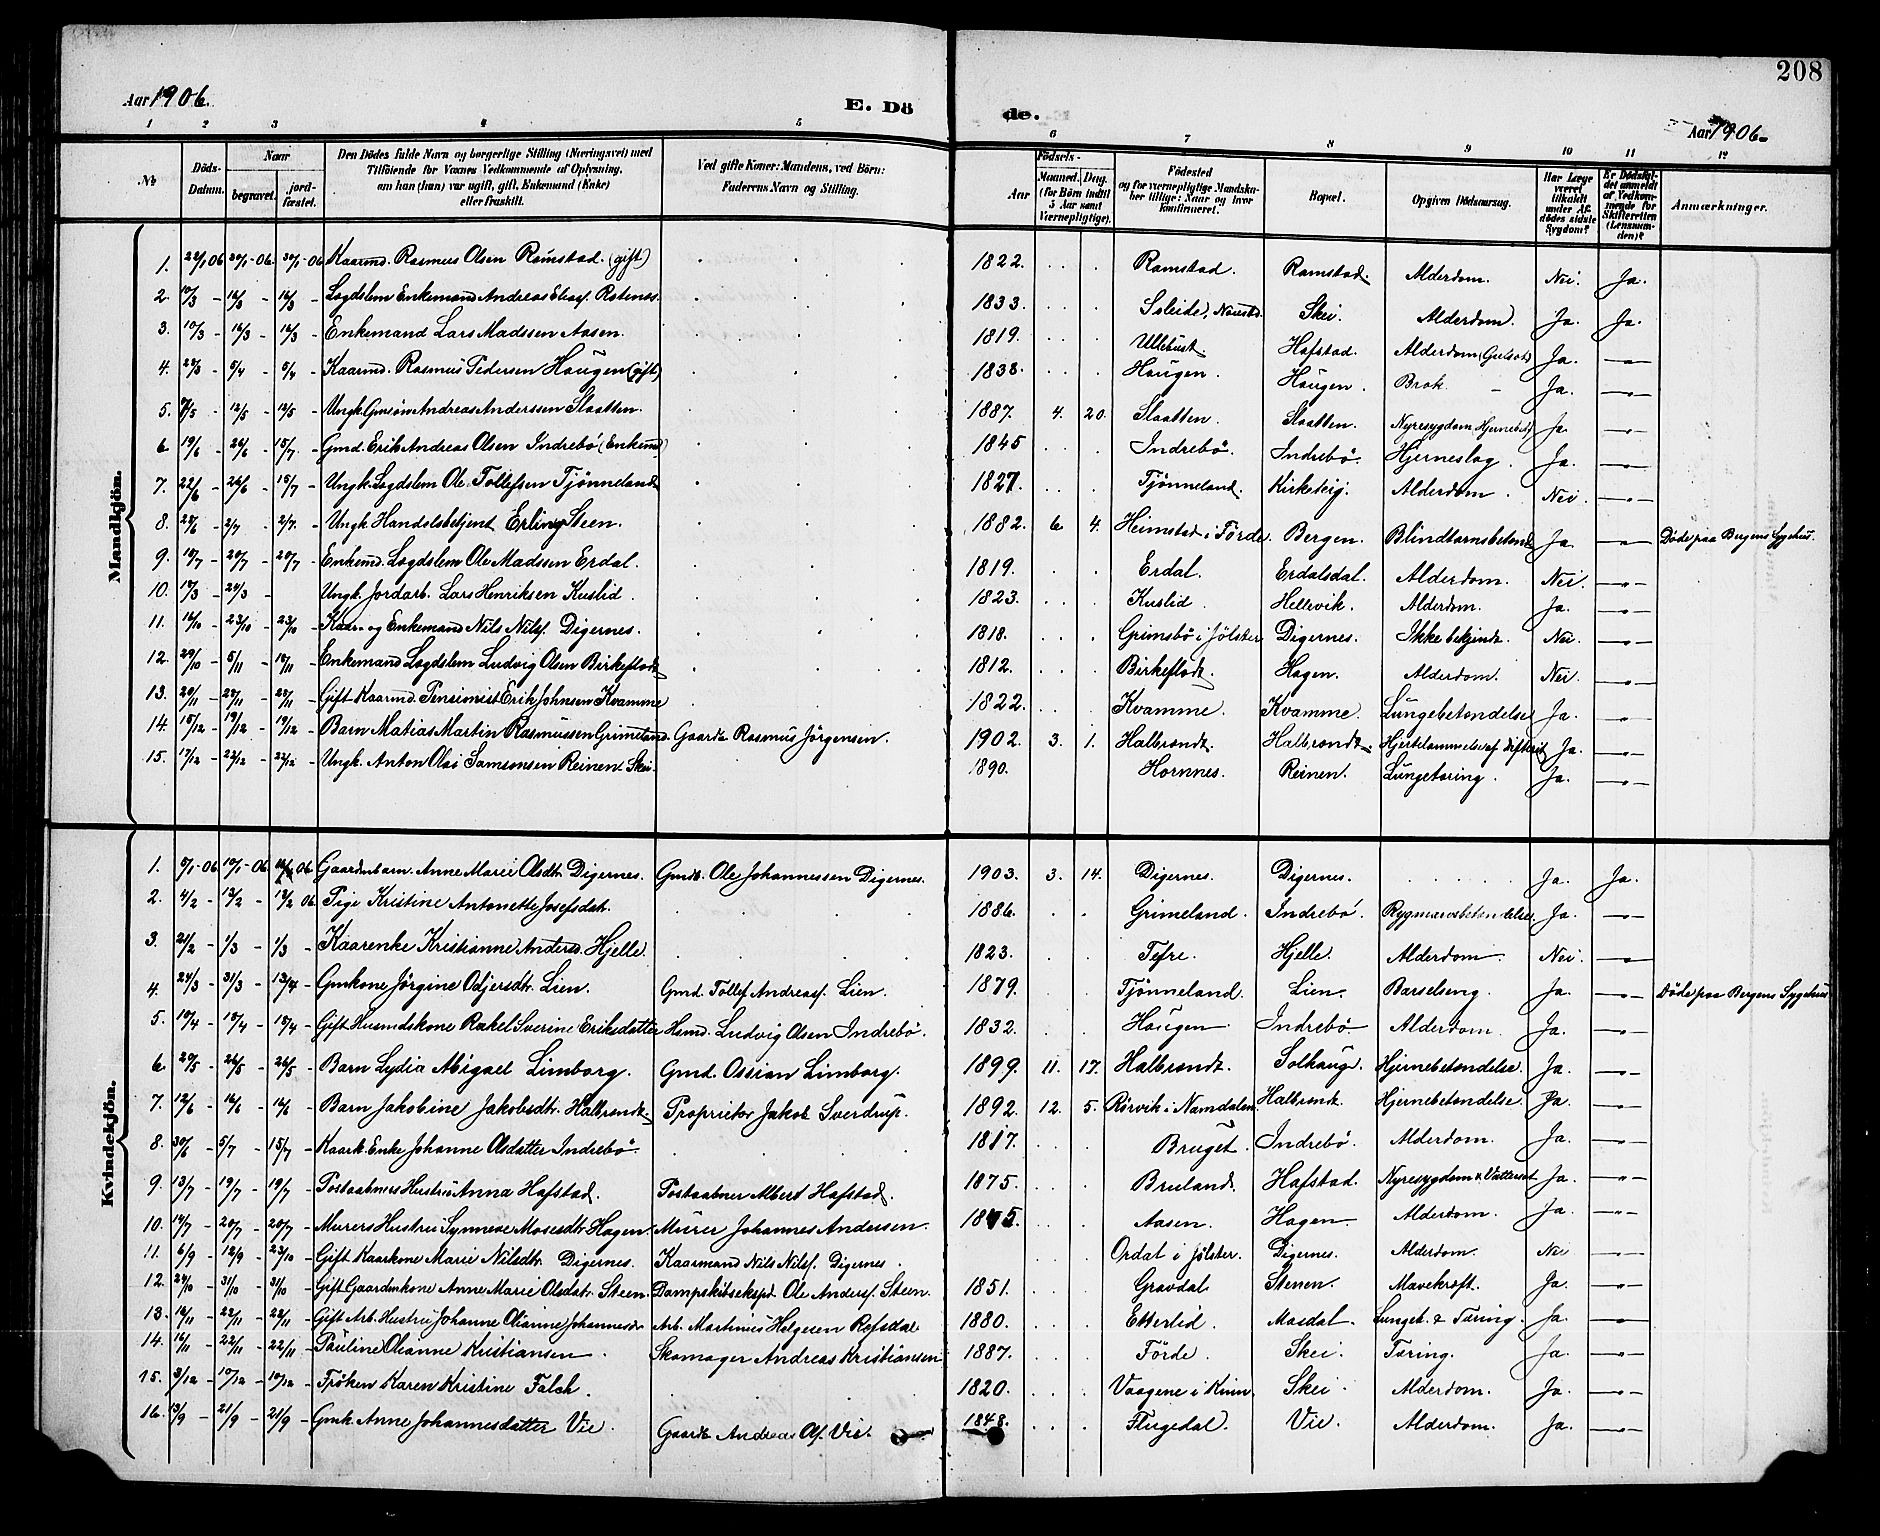 208
Aar 1906. E. Dö de. Aar 1906.
1 2 3 4 5 6 7 8 9 10 11 12
No Döds-Datum. Naar begravet. jord-fæstet. Den Dödes fulde Navn og borgerlige Stilling (Næringsvei) med Tilföiende for Voxnes Vedkommende af Oplysning, om han (hun) var ugift, gift, Enkemand (Enke) eller fraskilt. Ved gifte Koner: Mandens, ved Börn: Faderens Navn og Stilling. Födsels- Aar Maaned. Dag. (for Börn indtil 5 Aar samt Værnepligtige). Födested og for værnepligtige Mandskaber tillige: Naar og hvor konfirmeret. Bopæl. Opgiven Dödsaarsag. Har Læge været tilkaldt under Afdødes sidste Sygdom? Er Dödsfaldet anmeldt af Vedkommende for Skifteretten (Lensmanden)? Anmærkninger.
Mandkjön.
1. 22/1 06 30/1-06 Kaarmd. Rasmus Olsen Ramstad. (gift) 1822. Ramstad. Ramstad. Alderdom. Nei. Ja.
2. 10/3 - 16/3 - 16/3 - Logdslem Enkemand Andreas Elias. Rotenes. 1833. Skei. Alderdom. Ja. Ja.
3. 10/3 - 16/3 - 16/3 - Enkemand Lars Madssen Aasen. 1819. Hafstad. Alderdom (Gulsot) Ja. -"-
4. 5/4 - 5/4 - Kaarmd. Rasmus Pedersen Haugen (gift) 1838. Haugen. Haugen. Brok. - Ja. -"-
5. 7/5 - 12/5 - 12/5 - Ungk. Gmsøn Andreas Anderssen Slaatten. 1887. 4. 20. Slaatten. Slaatten. Nyresygdom Ja. -"-
6. 19/6 - 26/6 - 15/7 - Gmd. Erik Andreas Olsen Indrebö (Enkemd) 1845 Indrebö. Indrebö. Hjerneslag. Ja. -"-
7. 22/6 - 26/6 - 15/7 - Ungk. Logdslem Ole Tollefsen Tjønneland 1827. Tjønneland. Kirketeig. Alderdom. Nei -"-
8. 28/6 - 2/7 - 2/7 - Ungk. Handelsbetjent Erling Steen. 1882. 6 4. Heimstad i Förde. Bergen. Blindtarmsbetend. Ja. -"- Döde paa Bergens Sygehus.
9. 20/7 - 20/7 - Enkemd. Logdslem Ole Madssen Erdal. 1819. Erdal. Erdalsdal. Alderdom. Nei. -"-
10. 24/3 - Ungk. Jordarb. Lars Henriksen Kuslid. 1823. Kuslid. Hellevik. Alderdom. Ja. -"-
11. 16/10 - 23/10 - 23/10 - Kaar- og Enkemand Nils Nilss. Digernes. 1818. Grimsbö i Jölster Digernes. Ikke bekjendt. Nei -"-
12. 29/10 - 5/11 - 18/11 - Enkemand Logdslem Ludvig Olsen Birkeflodt 1812. Birkeflodt. Hagen. Alderdom. Nei. -"-
13. 20/11 - 28/11 - 28/11 - Gift Kaarmd. Pensionist Erik Johnsen Kvamme 1822. Kvamme. Kvamme. Lungebetendelse Ja. -"-
14. 15/12 - 19/12 - 19/12 - Barn Matias Martin Rasmussen Grimeland. Gaardb. Rasmus Jörgensen. 1902. 3. 1. Halbrendt. Halbrendt. Hjertelammelse af Difterit Ja. -"-
15. 17/12 - 22/12 - 22/12 - Ungk. Anton Olai Samsonsen Reinen Skei. 1890. Hornnes. Reinen. Lungetæring. Ja. -"-
Kvindekjön.
1. 5/1-06 10/1-06 Gaardmbarn. Anne Marie Olsdtr. Digernes. Gmdb. Ole Johannessen Digernes. 1903. 3. 14. Digernes. Digernes. Ja. Ja.
2. 4/2 - 12/2 - 12/2 06 Pige Kristine Antonette Josefsdat. 1886. Grimeland. Indrebö. Rygmarvsbetendelse. Ja. -"-
3. 21/2 - 1/3 - 1/3 - Kaarenke Kristianne Andersd. Hjelle. 1823. Tefre. Hjelle. Alderdom. Nei. -"-
4. 24/3 - 31/3 - 13/4 - Gmkone Jörgine Odjersdtr. Lien. Gmd. Tollef Andreass. Lien. 1879. Tjønneland. Lien. Barselseng. Ja. -"- Döde paa Bergens Sygehus
5. 10/4 - 18/4 - 18/4 - Gift Husmdskone Rakel Sverine Eriksdatter Hsmd. Ludvig Olsen Indrebö. 1832. Haugen. Indrebö Alderdom. Ja. -"-
6. 20/5 - 26/5 - 26/5 - Barn Lydia Abigael Limborg. Gmd. Ossian Limborg. 1899. 11. 17. Halbrendt. Solhaug. Hjernebetendelse Ja. -"-
7. 12/6 - 16/6 - 16/6 - Barn Jakobine Jakobsdtr. Halbrendt. Proprietær Jakob Sverdrup. 1892. 12. 5. Rörvik i Namdalen. Halbrendt. Hjernebetendelse. Ja. -"-
8. 30/6 - 5/7 - 15/7 - Kaark. Enke Johanne Olsdatter Indrebö. 1817. Bruget. Indrebö. Alderdom. Ja. -"-
9. 13/7 - 19/7 - 19/7 - Postaabners Hustru Anna Hafstad. Postaabner Albert Hafstad. 1875. Bruland. Hafstad. Nyresygdom & Vattersot Ja. -"-
10. 14/7 - 20/7 - 20/7 - Murers Hustru Synneve Mosesdtr. Hagen. Murer Johannes Andersen. Aasen. Hagen. Alderdom. Ja. -"-
11. 6/9 - 12/9 - 23/10 - Gift Kaarkone Marie Nilsdtr. Digernes. Kaarmand Nils Nilss. Digernes. Ordal i Jölster. Digernes. Alderdom. Nei -"-
12. 24/10 - 31/10 - 31/10 - Gift Gaardmkone Anne Marie Olsdtr. Steen. Dampskibseksp. Ole Anderss. Steen. 1851. Gravdal Stenen. Mavekræft. Ja. -"-
13. 16/11 - 22/11 - 22/11 - Gift Arb. Hustru Johanne Olianne Johannesdtr Arb. Martinus Helgesen Refsdal 1880. Etterlid. Mosdal. Lunget. & Tæring. Ja. -"-
14. 16/11 - 22/11 - 22/11 - Pauline Olianne Kristiansen. Skomager Andreas Kristiansen 1887. Förde. Skei. Tæring. Ja. -"-
15. 3/12 - 10/12 - 10/12 - Frøken Karen Kristine Falch. 1820. Vaagene i Kinn. Skei. Alderdom. Ja. -"-
16. 13/9 - 21/9 - 21/9 - Gmk. Anne Johannesdatter Vie. Gaardb. Andreas Ols. Vie. 1848. Flugedal. Vie. Alderdom. Ja. -"-